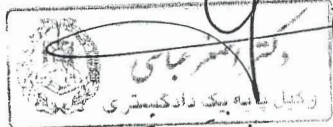 دکتر اصغر عباسی
وکیل پایه یک دادگستری